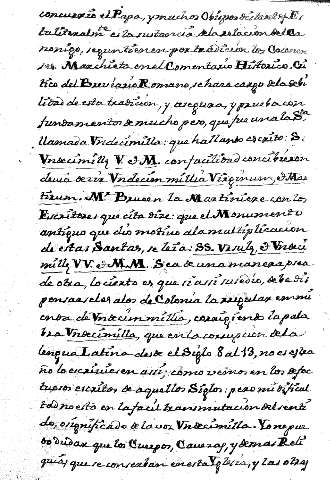 concurrió el Papa, y muchos Obispos de todas partes. Es
ta literalmte es la sustancia de la relacion del Ca
nonigo, segun tienen por tradicion los Colonen
ses. Marchieta en el Comentario Historico, Cri
tico del Breviario Romano, se hace cargo de la debi
lidad de esta tradicion, y asegura, y prueba con
fundamentos de mucho peso, que fue una la Sta
llamada Vndecimilla: que hallando escrito: S.
Vndecimilla V. & M. con facilidad concibieron
devia decir Vndecim millia Virginum, & Mar
tirum. Mr Bruce en la Martiniere con los
Escritores que cita dize: que el Monumento
antiguo que dio motivo a la multiplicacion
de estas Santas, se leía: SS. Ursula, & Vndeci
milla VV. & M.M. Sea de una manera, o sea
de otra, lo cierto es que si assi sucedio, se debe dis
pensarseles a los de Colonia la irregular enmi
enda de Vndecim millia, corrigiendo la pala
bra Vndecimilla, que en la corrupcion de la
lengua Latina desde el Siglo 8 al 13, no es estra
ño lo escriviesen assi; como vemos en los defec
tuosos escritos de aquellos Siglos; pero mi dificul
tad no está en la facil transmutacion del senti
do, o significado de la voz Vndecimilla. Yo no pue
do dudar que los Cuerpos, Caveras, y demas Reli
quias que se conserban en esta Yglesia, y las otras